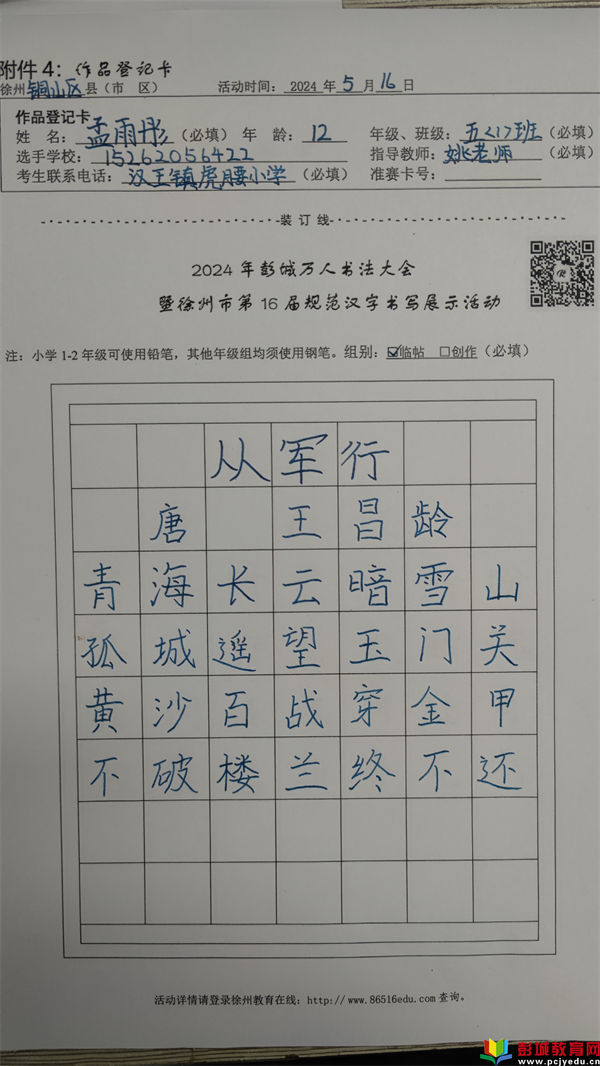 附件4：作品登记卡
徐州铜山区县（市 区） 活动时间：2024年5月16日
作品登记卡
姓 名：孟雨彤（必填）年 龄：12 年级、班级：五<1>班（必填）
选手学校：15262056422 指导教师：姚老师（必填）
考生联系电话：汉王镇虎腰小学（必填） 准赛卡号：
装订线
2024年彭城万人书法大会
暨徐州市第16届规范汉字书写展示活动
注：小学1-2年级可使用铅笔，其他年级组均须使用钢笔。组别：☑临帖 □创作（必填）
从军行
唐 王昌龄
青海长云暗雪山
孤城遥望玉门关
黄沙百战穿金甲
不破楼兰终不还
活动详情请登录徐州教育在线：http://www.86516edu.com查询。
彭城教育网
www.pcjyedu.cn